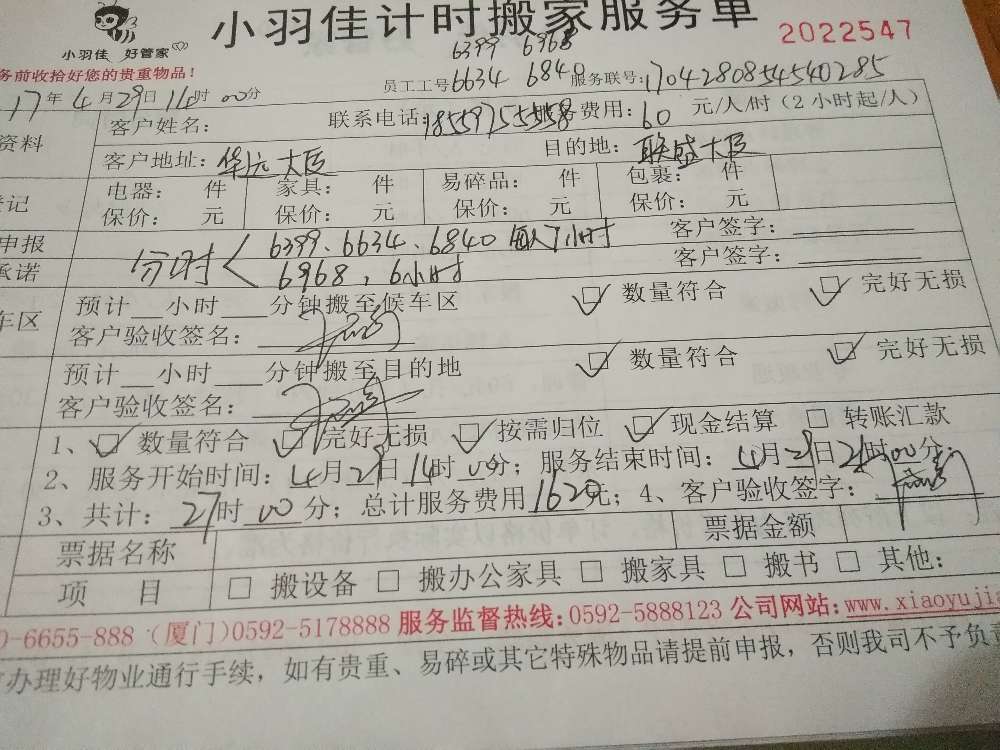 小羽佳计时搬家服务单
小羽佳 好管家
2022547
务前收拾好您的贵重物品！
6399 6968
员工工号 6634 6840 服务联号：1704280854540285
17年4月29日14时00分
资料 客户姓名： 联系电话：18559755558 服务费用：60 元/人/时（2小时起/人）
客户地址：华远大臣 目的地：联盛大臣
登记 电器： 件 家具： 件 易碎品： 件 包裹： 件
保价： 元 保价： 元 保价： 元 保价： 元
申报 分时< 6399、6634、6840 每人7小时 客户签字：
承诺 6968，6小时 客户签字：
车区 预计__小时___分钟搬至候车区 ☑ 数量符合 ☑ 完好无损
客户验收签名：
预计__小时___分钟搬至目的地 ☑ 数量符合 ☑ 完好无损
客户验收签名：
1、☑ 数量符合 ☑ 完好无损 ☑ 按需归位 ☑ 现金结算 □ 转账汇款
2、服务开始时间：4月29日14时00分；服务结束时间：4月29日21时00分；
3、共计：27时00分；总计服务费用1620元；4、客户验收签字：
票据名称 票据金额
项 目 □ 搬设备 □ 搬办公家具 □ 搬家具 □ 搬书 □ 其他：
0-6655-888 (厦门)0592-5178888 服务监督热线：0592-5888123 公司网站：www.xiaoyujia
办理好物业通行手续，如有贵重、易碎或其它特殊物品请提前申报，否则我司不予负责